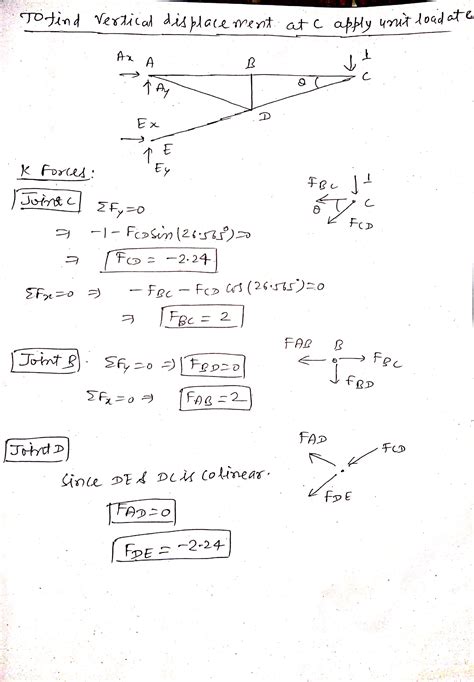 To find vertical displacement at C apply unit load at C
Ax A B 1
↑ Ay θ C
Ex D
E
↑ Ey
K Forces:
Joint C ΣFy=0
⇒ -1 - FCD Sin(26.565°)=0
⇒ FCD = -2.24
ΣFx=0 ⇒ - FBC - FCD Cos(26.565°)=0
⇒ FBC = 2
FBC 1
θ C
FCD
Joint B. ΣFy=0 ⇒ FBD=0
ΣFx=0 ⇒ FAB=2
FAB B
FBC
FBD
Joint D
Since DE & DC is colinear.
FAD=0
FDE = -2.24
FAD
FCD
FDE